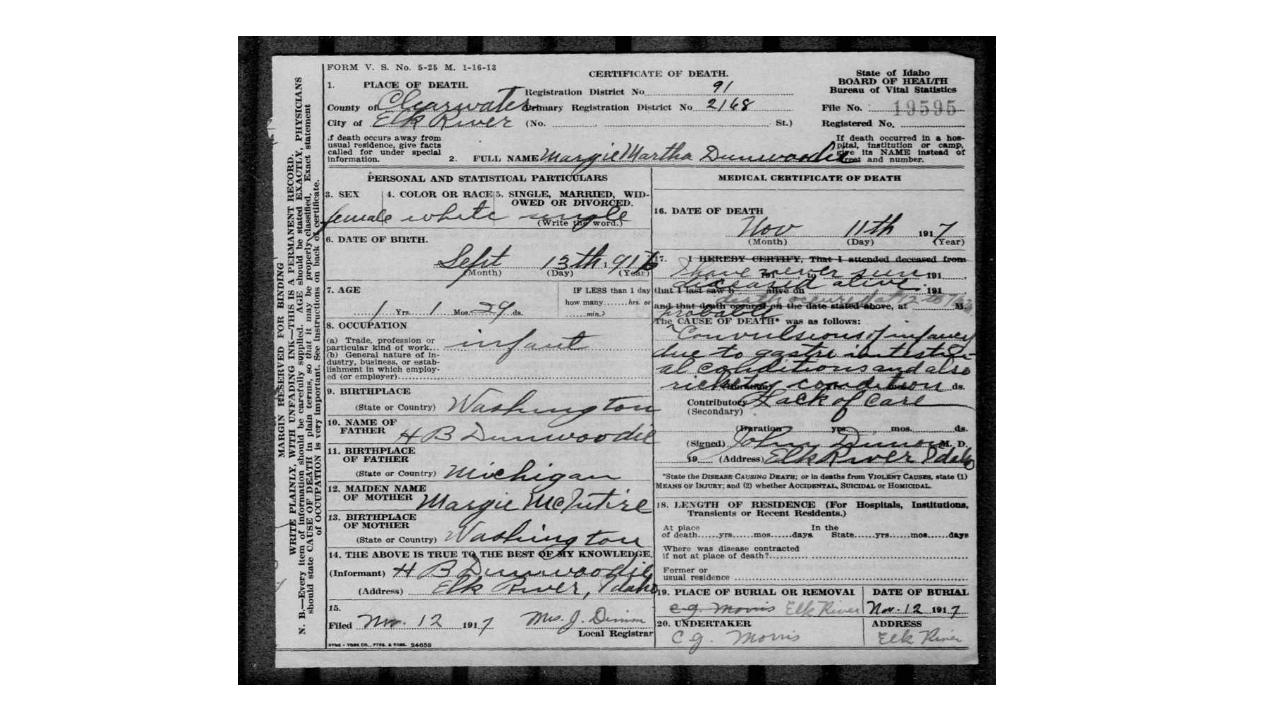 FORM V. S. No. 5-25 M. 1-16-13
CERTIFICATE OF DEATH.
State of Idaho
BOARD OF HEALTH
Bureau of Vital Statistics
1. PLACE OF DEATH.
Registration District No 91
County of Clearwater Primary Registration District No 2168
File No. 19595
City of Elk River (No. St.)
Registered No.
If death occurs away from usual residence, give facts called for under special information.
If death occurred in a hospital, institution or camp, give its NAME instead of street and number.
2. FULL NAME Margie Martha Dunwoodie
PERSONAL AND STATISTICAL PARTICULARS
3. SEX
female
4. COLOR OR RACE
white
5. SINGLE, MARRIED, WIDOWED OR DIVORCED.
single
(Write the word.)
6. DATE OF BIRTH.
Sept 13th 1916
(Month) (Day) (Year)
7. AGE
1 Yrs. 1 Mos. 29 ds.
IF LESS than 1 day
how many......hrs. or
......min.)
8. OCCUPATION
(a) Trade, profession or
particular kind of work... infant
(b) General nature of in-
dustry, business, or estab-
lishment in which employ-
ed (or employer)
9. BIRTHPLACE
(State or Country) Washington
10. NAME OF
FATHER H B Dunwoodie
11. BIRTHPLACE
OF FATHER
(State or Country) Michigan
12. MAIDEN NAME
OF MOTHER Margie McIntire
13. BIRTHPLACE
OF MOTHER
(State or Country) Washington
14. THE ABOVE IS TRUE TO THE BEST OF MY KNOWLEDGE.
(Informant) H B Dunwoodie
(Address) Elk River, Idaho
15.
Filed Nov. 12 1917 Mrs. J.
Local Registrar
SYMS - YORK CO., PTRS. & BNDS. 24658
MEDICAL CERTIFICATE OF DEATH
16. DATE OF DEATH
Nov 11th 1917
(Month) (Day) (Year)
17. I HEREBY CERTIFY, That I attended deceased from
I have never seen 191
that I last saw h alive on 191
deceased alive
death occured at
and that death occured on the date stated above, at M.
probable
The CAUSE OF DEATH* was as follows:
Convulsions of infancy
due to gastro intestin-
al conditions and also
rickety condition ds.
Contributory Lack of Care
(Secondary)
(Duration yrs. mos. ds.
(Signed) John M. D.
19 (Address) Elk River Idaho
*State the DISEASE CAUSING DEATH; or in deaths from VIOLENT CAUSES, state (1)
MEANS OF INJURY; and (2) whether ACCIDENTAL, SUICIDAL or HOMICIDAL.
18. LENGTH OF RESIDENCE (For Hospitals, Institutions,
Transients or Recent Residents.)
At place In the
of death......yrs......mos......days State......yrs......mos......days
Where was disease contracted
if not at place of death?
Former or
usual residence
19. PLACE OF BURIAL OR REMOVAL
C.G. Morris Elk River
DATE OF BURIAL
Nov. 12 1917
20. UNDERTAKER
C G Morris
ADDRESS
Elk River
MARGIN RESERVED FOR BINDING
WRITE PLAINLY, WITH UNFADING INK—THIS IS A PERMANENT RECORD.
N. B.—Every item of information should be carefully supplied. AGE should be stated EXACTLY. PHYSICIANS
should state CAUSE OF DEATH in plain terms, so that it may be properly classified. Exact statement
of OCCUPATION is very important. See instructions on back of certificate.